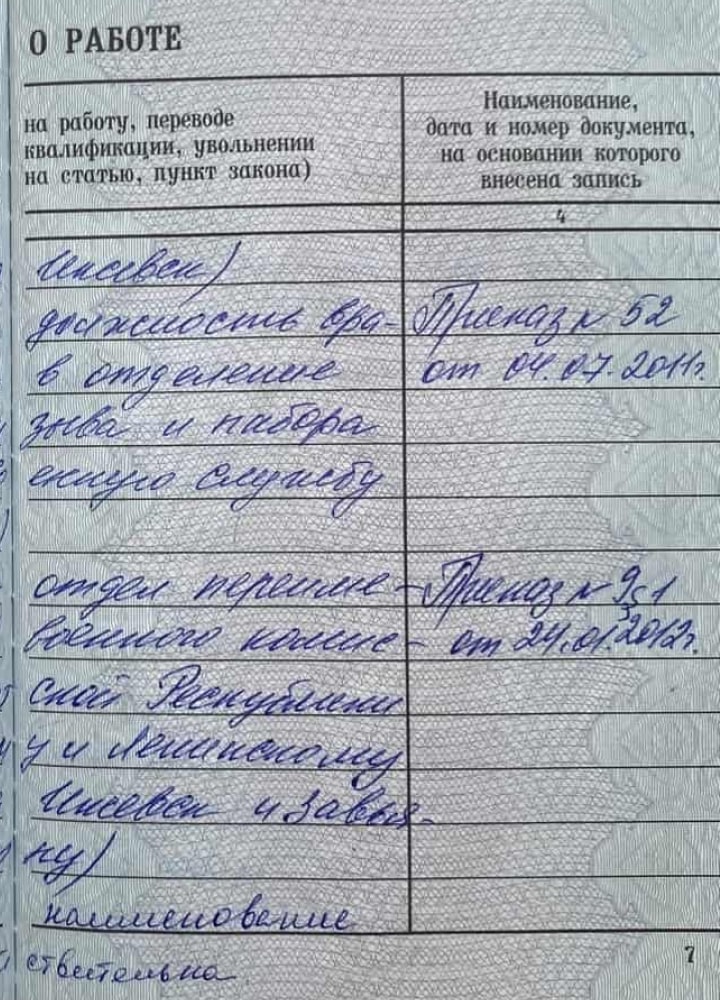 О РАБОТЕ
на работу, переводе
квалификации, увольнении
на статью, пункт закона)
Наименование,
дата и номер документа,
на основании которого
внесена запись
4
Ижевск)
должность вра- Приказ № 52
в отделение от 04.07.2011г.
зыва и набора
енную службу
отдел переиме- Приказ №
военного комис- от 24.01.2012г.
ской Республики
у и Ленинскому
Ижевск и Завья-
ку)
наименование
ствительна
7